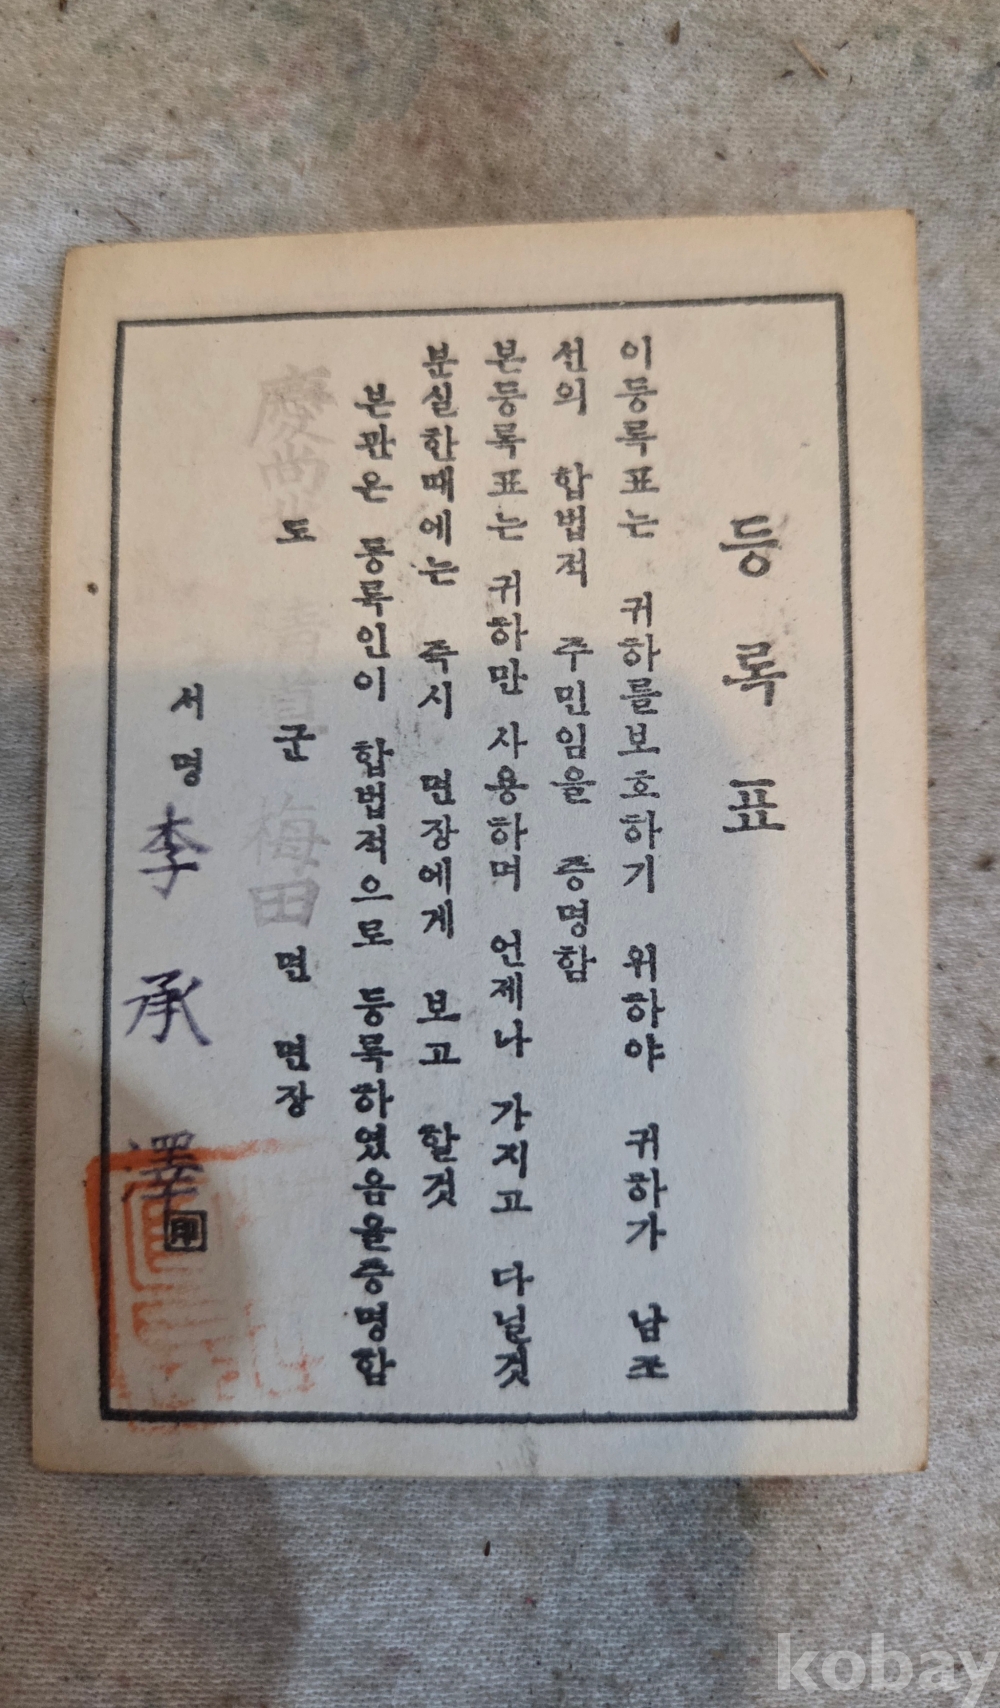 등록표
이등록표는 귀하를보호하기 위하야 귀하가 남조
선의 합법적 주민임을 증명함
본등록표는 귀하만 사용하며 언제나 가지고 다닐것
분실한때에는 즉시 면장에게 보고 할것
본관은 등록인이 합법적으로 등록하였음을증명함
慶尚北 도 淸道 군 梅田 면 면장
서명 李承澤 印
kobay